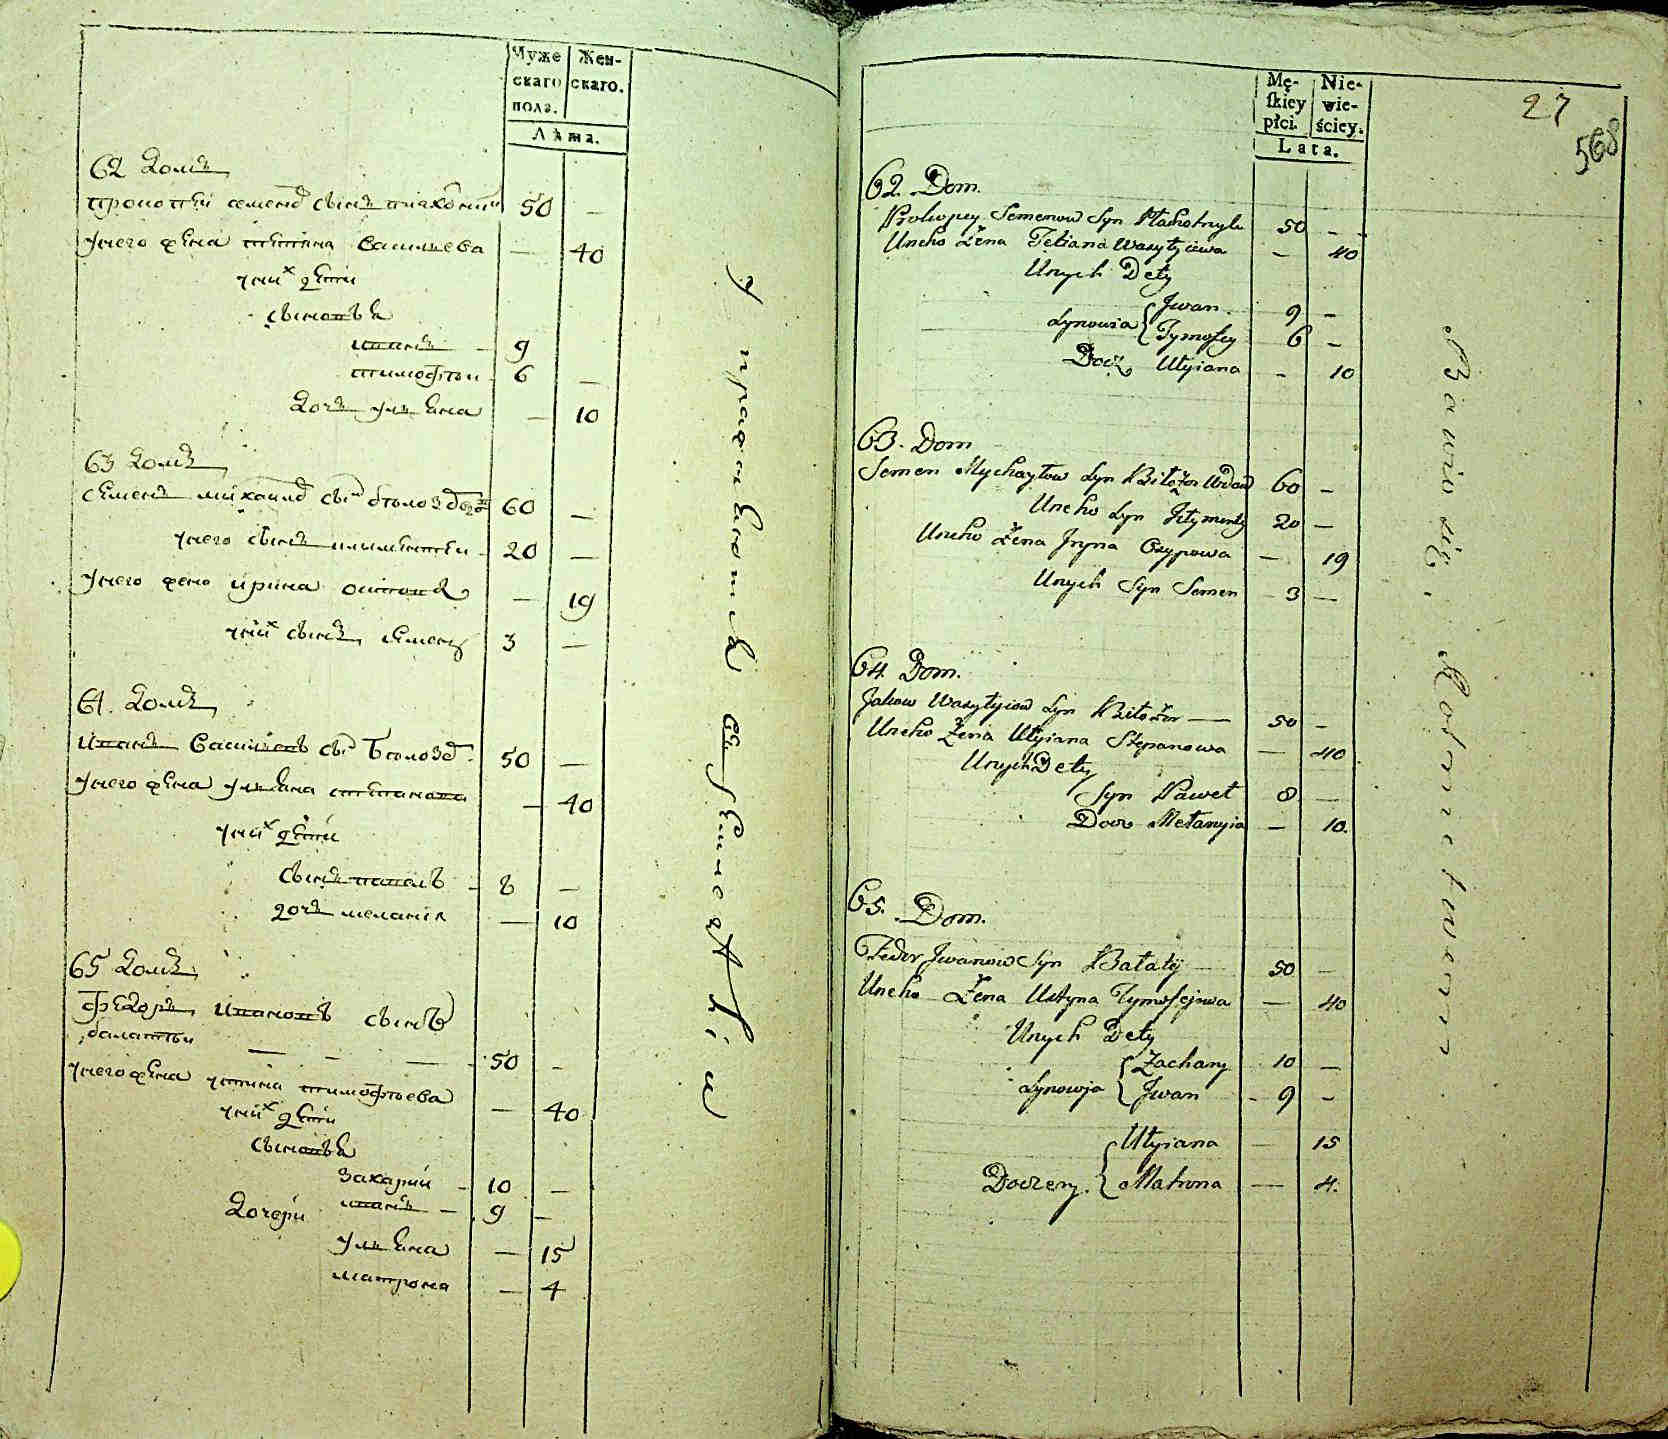 Муже
скаго
пола.
Жен-
скаго.
Лѣта.
62 домъ
прокопѣй семенов сынъ плахотнн 50 —
унего жена татиана васильева — 40
уних дѣти
сыновья
иванъ - 9
тимофѣй - 6 —
дочь ульяна — 10
63 домъ
семенъ михаилов сын бѣлозор 60 —
унего сынъ климѣнтѣй - 20 —
унего жена ирина осипова — 19
уних сынъ, семенъ 3 —
64. домъ
иванъ васильевъ сын бѣлозор 50 —
унего жена ульяна степанова — 40
уних дѣти
сынъ павелъ - 8 —
дочь меланія — 10
65 домъ
федоръ ивановъ сынъ
балатѣй — — — 50 -
унего жена устина тимофѣева — 40
уних дѣти
сыновья
захарий - 10 —
иванъ - 9 —
дочери
ульяна — 15
матрона — 4
упражняются в земледѣліи
Mę-
skiey
płci.
Nie-
wie-
ściey.
Lata.
27
568
62. Dom.
Prokopey Semenow Syn Płachotnyk 50 -
Uneho Żena Tetiana Wasylyiewa - 40
Unych Dety
Synowia { Jwan. 9 -
Tymofey 6 -
Docz Ulyiana - 10
63. Dom
Semen Mychayłow Syn Biłozor Wdow 60 -
Uneho Syn Kłymenty 20 -
Uneho Żena Jryna Osypowa — 19
Unych Syn Semen - 3 —
64. Dom.
Jakow Wasylyiow Syn Biłozor — 50 -
Uneho Żena Ulyiana Stepanowa — 40
Unych Dety
Syn Paweł 8 —
Docz Mełanyia — 10.
65. Dom.
Fedor Jwanow Syn Bałaty — 50 —
Uneho Żena Ustyna Tymofejewa — 40
Unych Dety
Synowja { Zachary 10 —
Jwan - 9 -
Doczery. { Ulyiana — 15
Matrona — 4.
Bawio się, Rolnictwem.